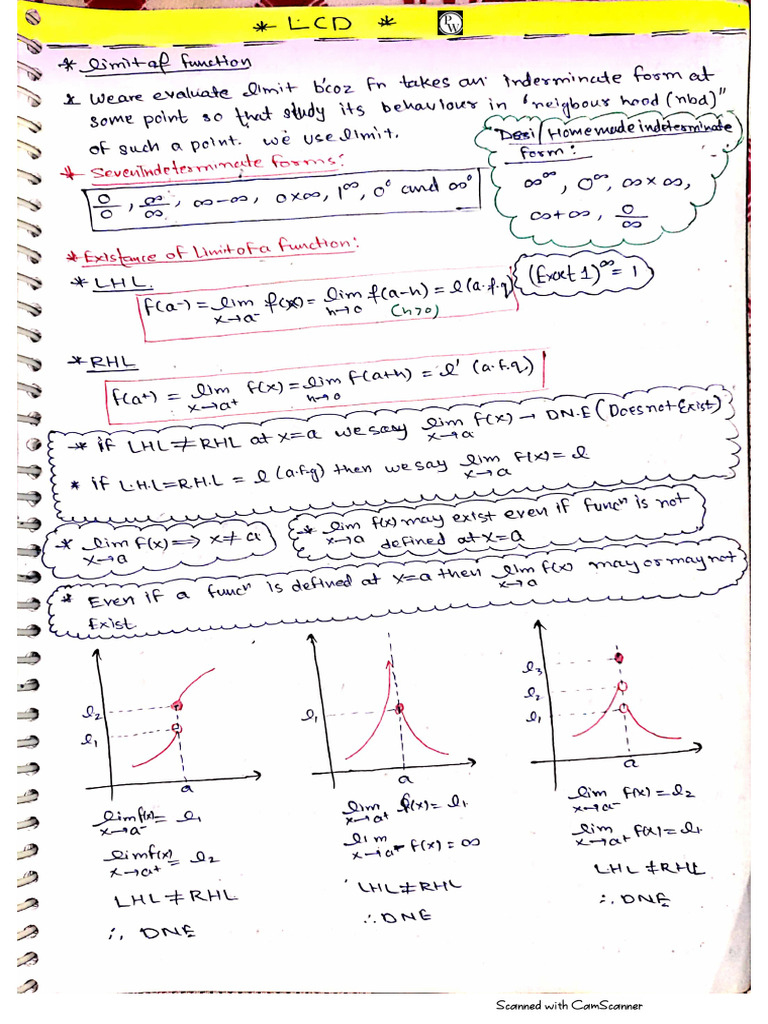 * LCD *
PW
* limit of function
* We are evaluate limit b'coz Fn takes an inderminate form at
some point so that study its behaviour in 'neigbour hood (nbd)"
of such a point. we use limit.
"Desi/Homemade indeterminate
form:
∞^∞, 0^∞, ∞×∞,
∞+∞, 0/∞
* Seven Indeterminate forms:
0/0, ∞/∞, ∞-∞, 0×∞, 1^∞, 0° and ∞°
* Existance of Limit of a function:
* LHL
f(a-) = lim x→a⁻ f(x) = lim h→0 f(a-h) = l (a.f.q)
(h>0)
(Exact 1)^∞ = 1
* RHL
f(a+) = lim x→a⁺ f(x) = lim h→0 f(a+h) = l' (a.f.q.)
* if LHL ≠ RHL at x=a we say lim x→a f(x) → D.N.E (Does not Exist)
* if L.H.L = R.H.L = l (a.f.q) then we say lim x→a f(x) = l
* lim x→a f(x) ⇒ x ≠ a
* lim x→a f(x) may exist even if funcⁿ is not
defined at x=a
* Even if a funcⁿ is defined at x=a then lim x→a f(x) may or may not
Exist.
l₂
l₁
a
lim x→a⁻ f(x) = l₁
lim x→a⁺ f(x) = l₂
LHL ≠ RHL
∴ DNE
l₁
a
lim x→a⁺ f(x) = l₁
lim x→a⁻ f(x) = ∞
LHL ≠ RHL
∴ DNE
l₃
l₂
l₁
a
lim x→a⁻ f(x) = l₂
lim x→a⁺ f(x) = l₁
LHL ≠ RHL
∴ DNE
Scanned with CamScanner